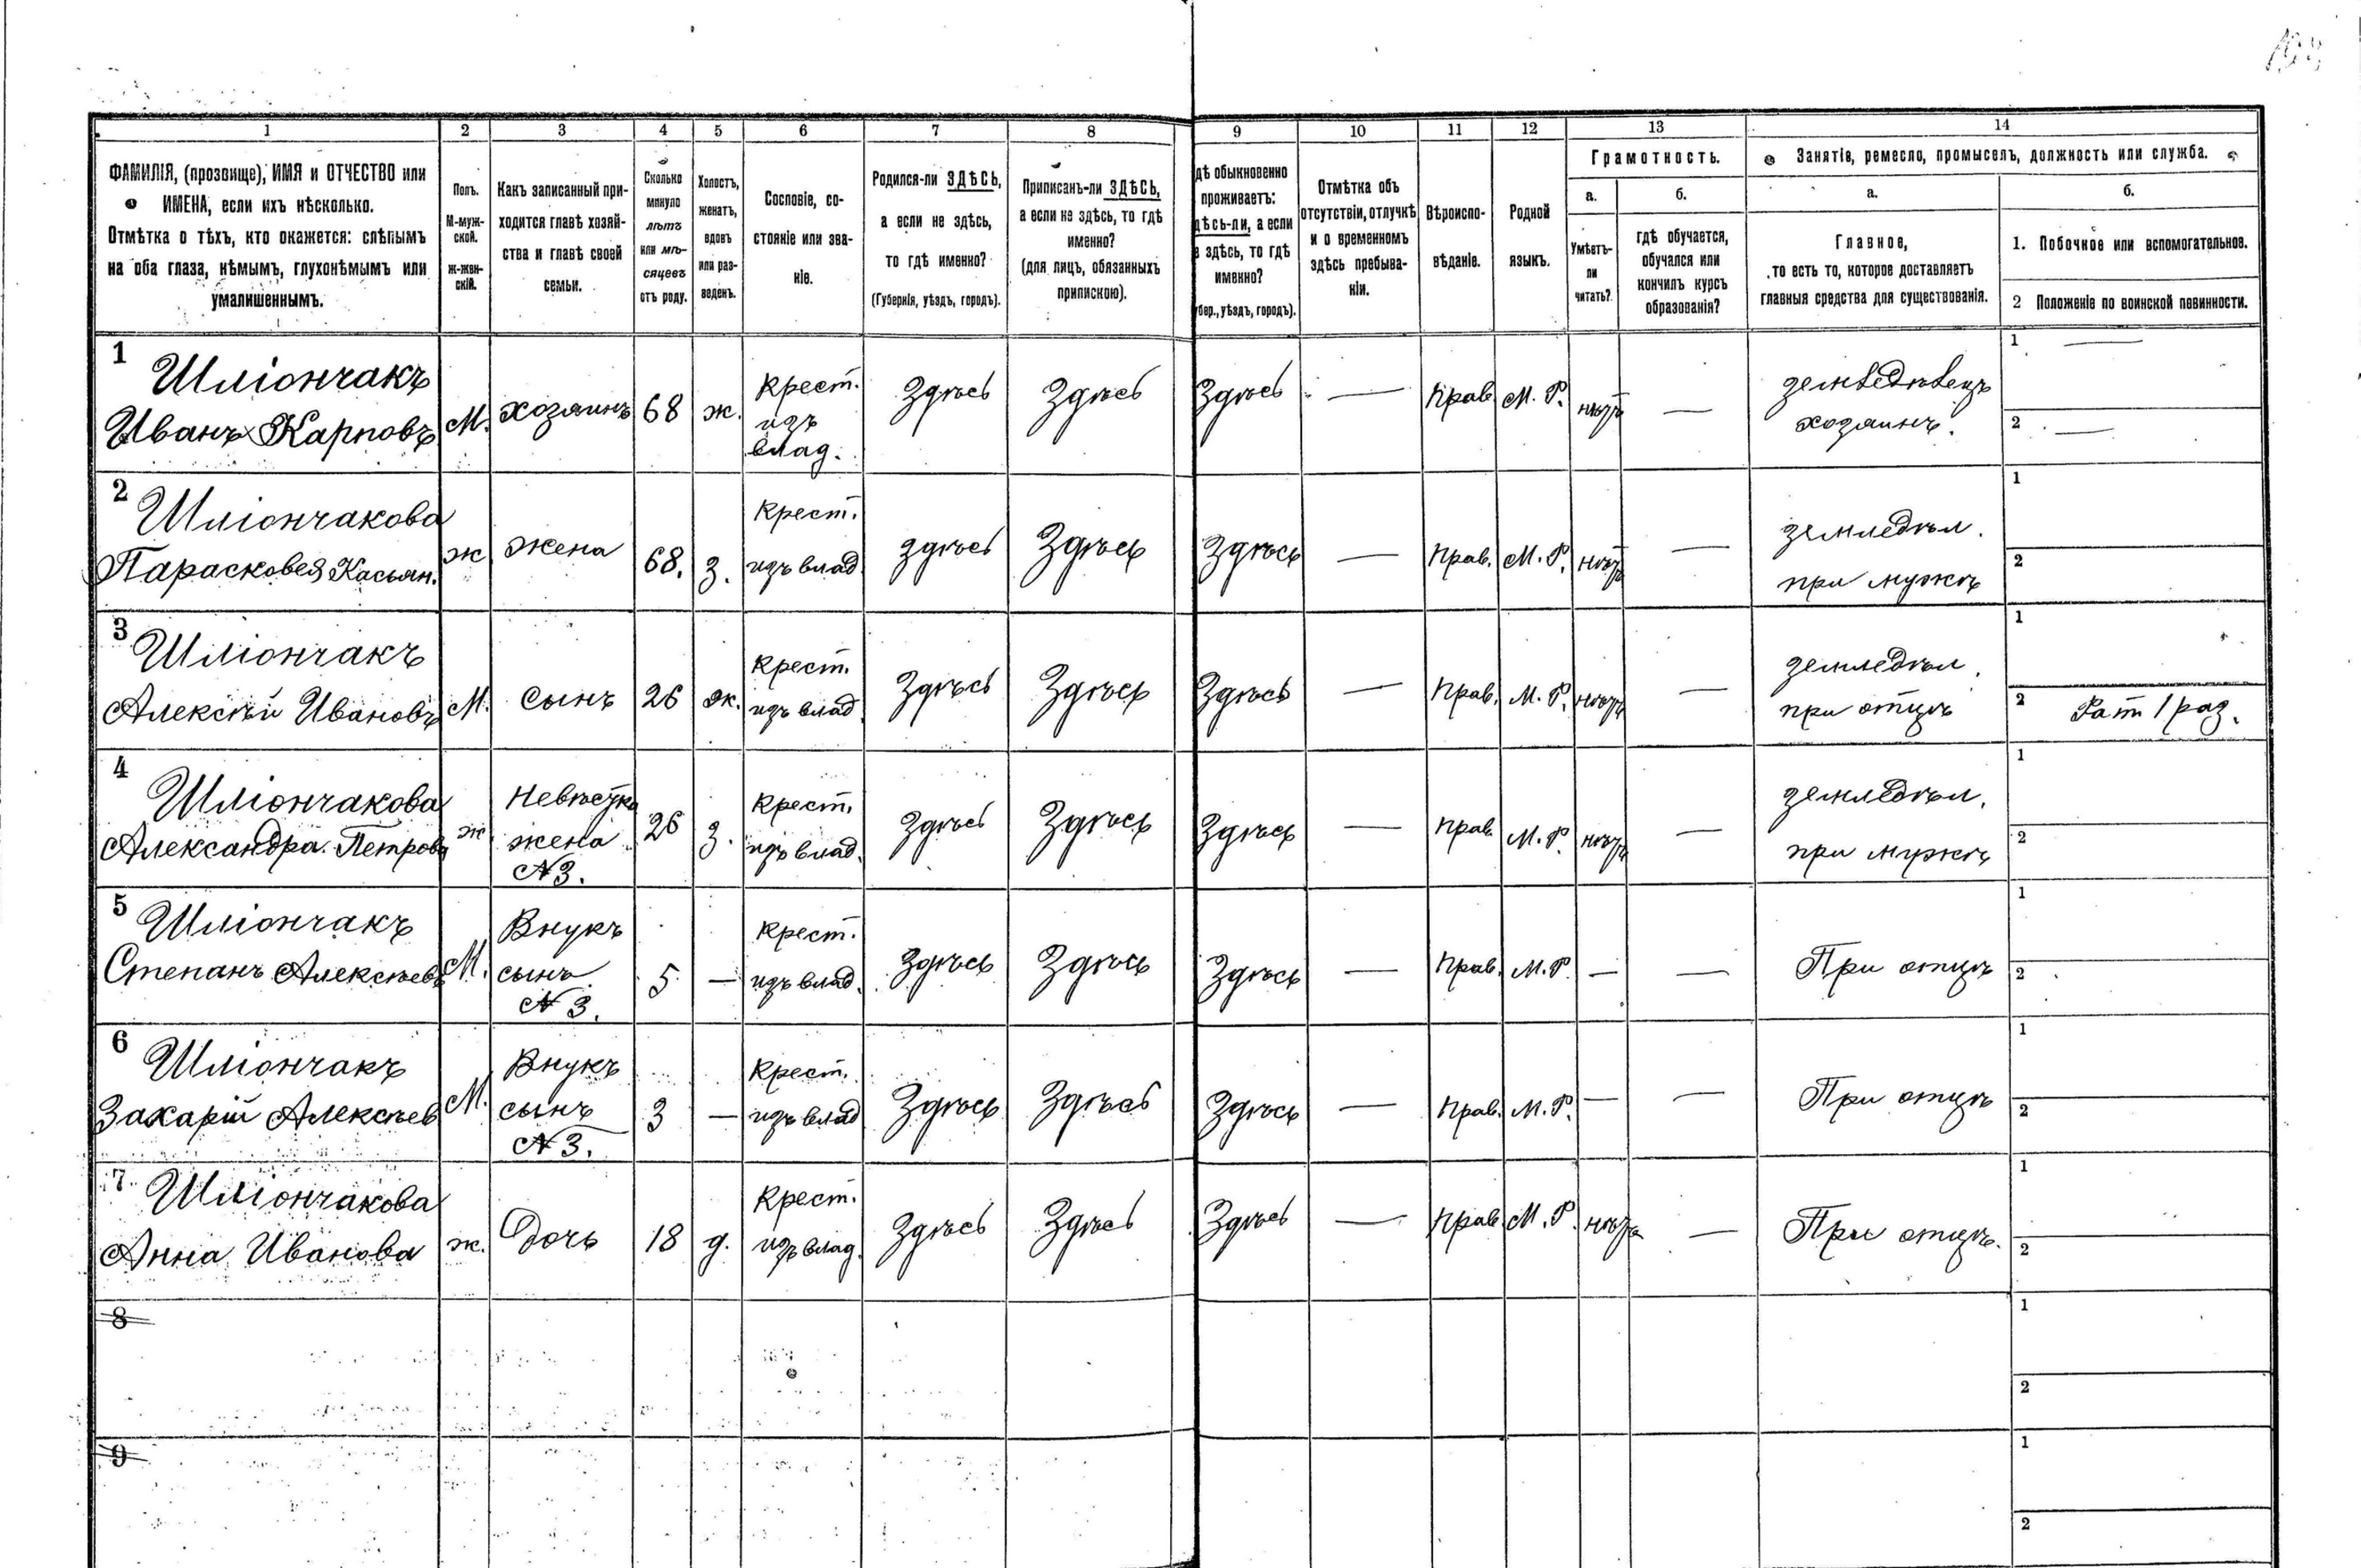 1 2 3 4 5 6 7 8 9 10 11 12 13 14
ФАМИЛІЯ, (прозвище), ИМЯ и ОТЧЕСТВО или
ИМЕНА, если ихъ нѣсколько.
Отмѣтка о тѣхъ, кто окажется: слѣпымъ
на оба глаза, нѣмымъ, глухонѣмымъ или
умалишеннымъ.
Полъ.
М-муж-
ской.
ж-жен-
скій.
Какъ записанный при-
ходится главѣ хозяй-
ства и главѣ своей
семьи.
Сколько
минуло
лѣтъ
или мѣ-
сяцевъ
отъ роду.
Холостъ,
женатъ,
вдовъ
или раз-
веденъ.
Сословіе, со-
стояніе или зва-
ніе.
Родился-ли ЗДѢСЬ,
а если не здѣсь,
то гдѣ именно?
(Губернія, уѣздъ, городъ).
Приписанъ-ли ЗДѢСЬ,
а если не здѣсь, то гдѣ
именно?
(для лицъ, обязанныхъ
припискою).
дѣ обыкновенно
проживаетъ:
дѣсь-ли, а если
е здѣсь, то гдѣ
именно?
бер., уѣздъ, городъ).
Отмѣтка объ
отсутствіи, отлучкѣ
и о временномъ
здѣсь пребыва-
ніи.
Вѣроиспо-
вѣданіе.
Родной
языкъ.
Грамотность.
а.
Умѣетъ-
ли
читать?
б.
гдѣ обучается,
обучался или
кончилъ курсъ
образованія?
Занятіе, ремесло, промыселъ, должность или служба.
а.
Главное,
то есть то, которое доставляетъ
главныя средства для существованія.
б.
1. Побочное или вспомогательное.
2 Положеніе по воинской повинности.
1 Шліончакъ
Иванъ Карповъ
М. хозяинъ 68 ж.
Крест.
изъ
влад.
Здѣсь Здѣсь Здѣсь — Прав. М. Р. нѣтъ —
земледѣлецъ
хозяинъ.
1 —
2 —
2 Шліончакова
Парасковея Касьян.
ж жена 68. з.
Крест.
изъ влад.
Здѣсь Здѣсь Здѣсь — Прав. М. Р. нѣтъ —
земледѣл.
при мужѣ
1
2
3 Шліончакъ
Алексѣй Ивановъ
М. сынъ 26 ж.
Крест.
изъ влад.
Здѣсь Здѣсь Здѣсь — Прав. М. Р. нѣтъ —
земледѣл.
при отцѣ
1
2 Рат 1 раз.
4 Шліончакова
Александра Петрова
ж.
Невѣстка
жена
№3.
26 з.
Крест.
изъ влад.
Здѣсь Здѣсь Здѣсь — Прав. М. Р. нѣтъ —
земледѣл.
при мужѣ
1
2
5 Шліончакъ
Степанъ Алексѣевъ
М.
Внукъ
сынъ
№3.
5 —
Крест.
изъ влад.
Здѣсь Здѣсь Здѣсь — Прав. М. Р. — —
При отцѣ
1
2
6 Шліончакъ
Захарій Алексѣев
М.
Внукъ
сынъ
№3.
3 —
Крест.
изъ влад
Здѣсь Здѣсь Здѣсь — Прав. М. Р. — —
При отцѣ
1
2
7 Шліончакова
Анна Иванова
ж. Дочь 18 д.
Крест.
изъ влад.
Здѣсь Здѣсь Здѣсь — Прав. М. Р. нѣтъ —
При отцѣ.
1
2
8
1
2
9
1
2